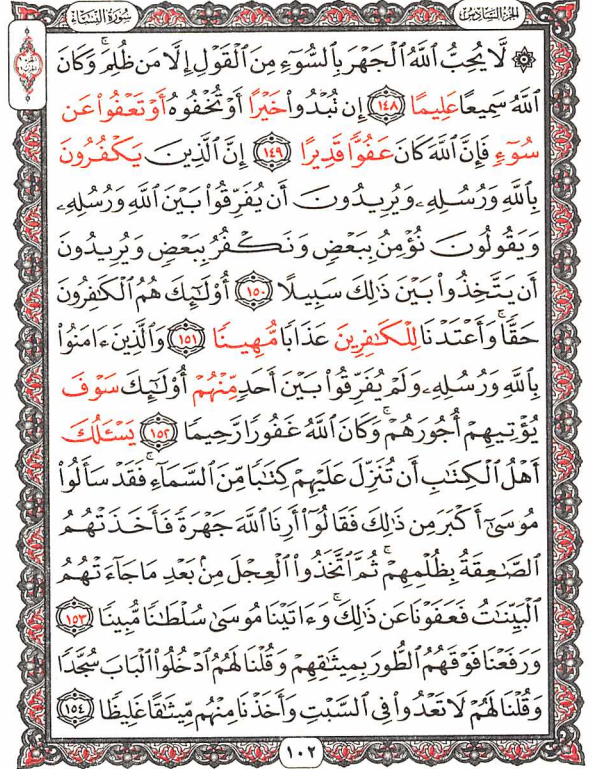 الجزء السادس
سُورَةُ النِّسَاءِ
۞ لَّا يُحِبُّ ٱللَّهُ ٱلْجَهْرَ بِٱلسُّوٓءِ مِنَ ٱلْقَوْلِ إِلَّا مَن ظُلِمَۚ وَكَانَ
ٱللَّهُ سَمِيعًا عَلِيمًا ١٤٨ إِن تُبْدُوا۟ خَيْرًا أَوْ تُخْفُوهُ أَوْ تَعْفُوا۟ عَن
سُوٓءٍ فَإِنَّ ٱللَّهَ كَانَ عَفُوًّا قَدِيرًا ١٤٩ إِنَّ ٱلَّذِينَ يَكْفُرُونَ
بِٱللَّهِ وَرُسُلِهِۦ وَيُرِيدُونَ أَن يُفَرِّقُوا۟ بَيْنَ ٱللَّهِ وَرُسُلِهِۦ
وَيَقُولُونَ نُؤْمِنُ بِبَعْضٍ وَنَكْفُرُ بِبَعْضٍ وَيُرِيدُونَ
أَن يَتَّخِذُوا۟ بَيْنَ ذَٰلِكَ سَبِيلًا ١٥٠ أُو۟لَٰٓئِكَ هُمُ ٱلْكَٰفِرُونَ
حَقًّاۚ وَأَعْتَدْنَا لِلْكَٰفِرِينَ عَذَابًا مُّهِينًا ١٥١ وَٱلَّذِينَ ءَامَنُوا۟
بِٱللَّهِ وَرُسُلِهِۦ وَلَمْ يُفَرِّقُوا۟ بَيْنَ أَحَدٍ مِّنْهُمْ أُو۟لَٰٓئِكَ سَوْفَ
يُؤْتِيهِمْ أُجُورَهُمْۗ وَكَانَ ٱللَّهُ غَفُورًا رَّحِيمًا ١٥٢ يَسْـَٔلُكَ
أَهْلُ ٱلْكِتَٰبِ أَن تُنَزِّلَ عَلَيْهِمْ كِتَٰبًا مِّنَ ٱلسَّمَآءِۚ فَقَدْ سَأَلُوا۟
مُوسَىٰٓ أَكْبَرَ مِن ذَٰلِكَ فَقَالُوٓا۟ أَرِنَا ٱللَّهَ جَهْرَةً فَأَخَذَتْهُمُ
ٱلصَّٰعِقَةُ بِظُلْمِهِمْۚ ثُمَّ ٱتَّخَذُوا۟ ٱلْعِجْلَ مِنۢ بَعْدِ مَا جَآءَتْهُمُ
ٱلْبَيِّنَٰتُ فَعَفَوْنَا عَن ذَٰلِكَۚ وَءَاتَيْنَا مُوسَىٰ سُلْطَٰنًا مُّبِينًا ١٥٣
وَرَفَعْنَا فَوْقَهُمُ ٱلطُّورَ بِمِيثَٰقِهِمْ وَقُلْنَا لَهُمُ ٱدْخُلُوا۟ ٱلْبَابَ سُجَّدًا
وَقُلْنَا لَهُمْ لَا تَعْدُوا۟ فِى ٱلسَّبْتِ وَأَخَذْنَا مِنْهُم مِّيثَٰقًا غَلِيظًا ١٥٤
١٠٢